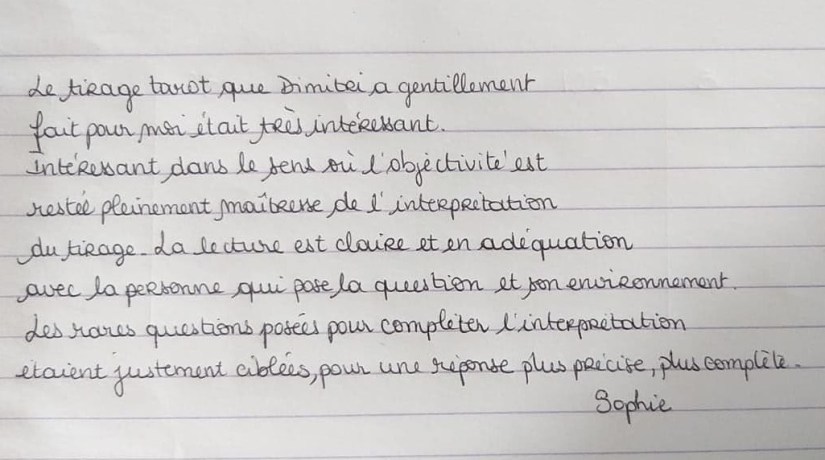 Le tirage tarot que Dimitri a gentillement
fait pour moi était très intéressant.
Intéressant dans le sens où l'objectivité est
restée pleinement maîtresse de l'interprétation
du tirage. La lecture est claire et en adéquation
avec la personne qui pose la question et son environnement.
Les rares questions posées pour compléter l'interprétation
étaient justement ciblées, pour une réponse plus précise, plus complète.
Sophie